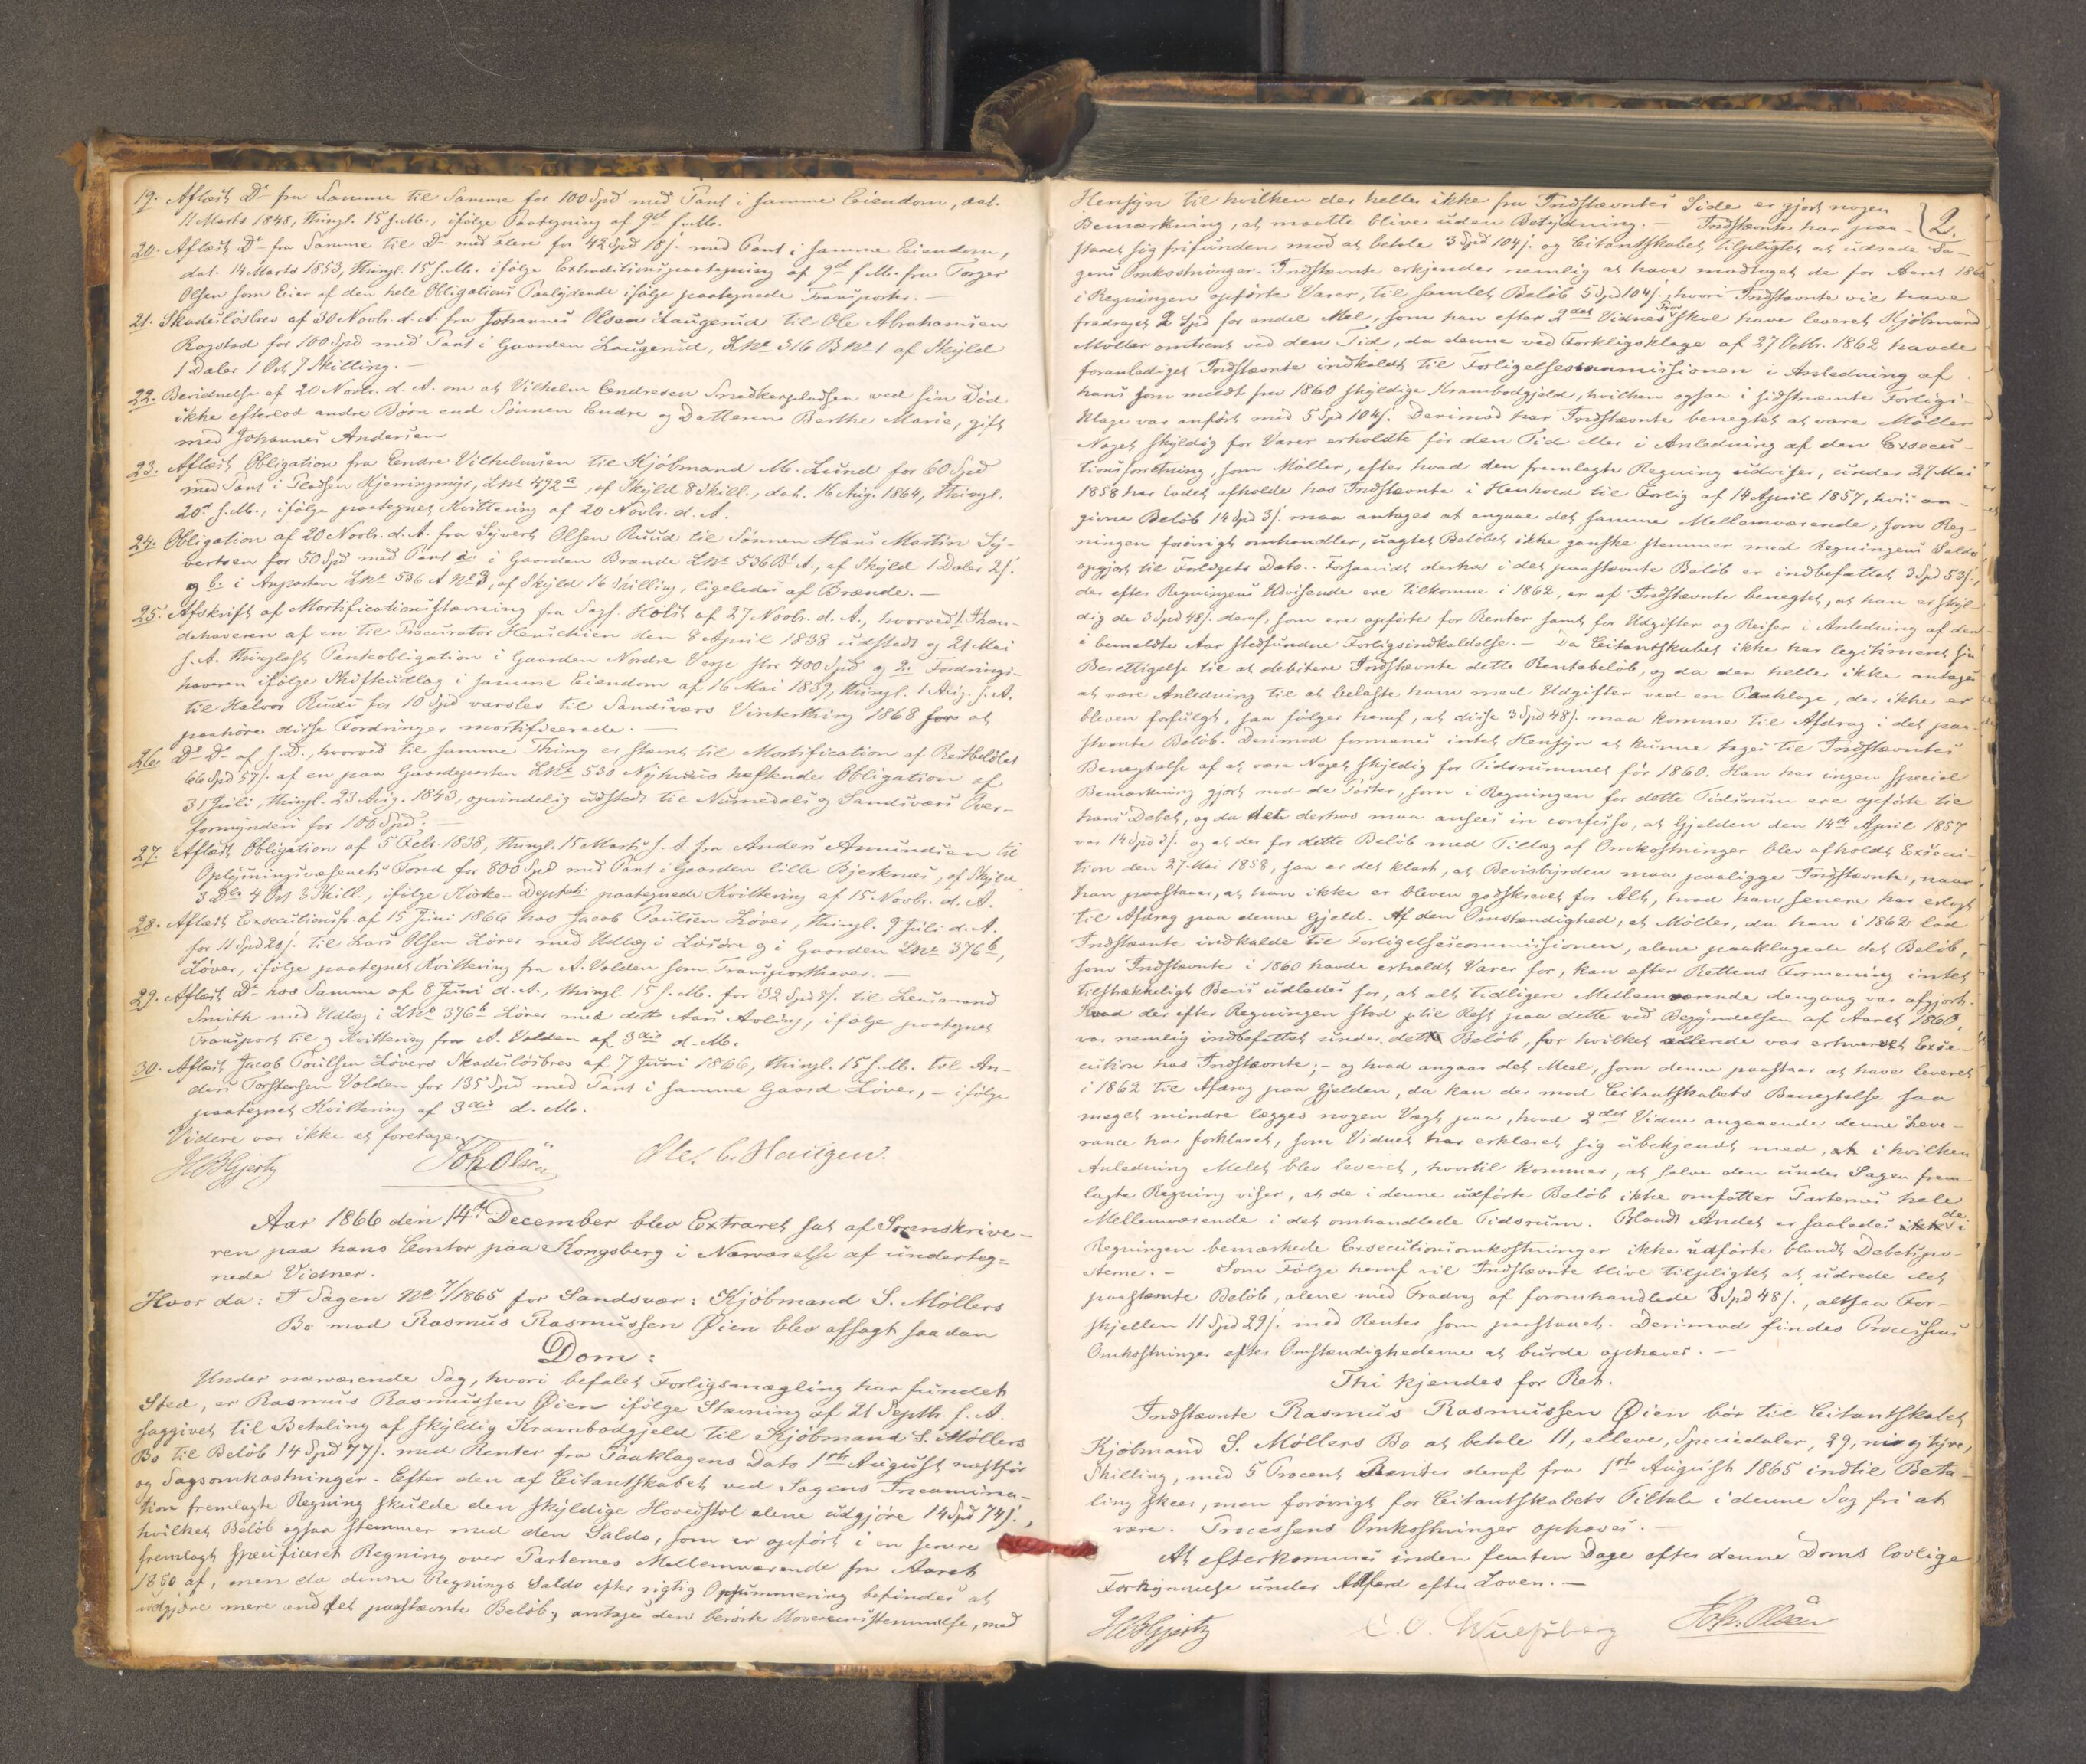 19. Aflæst Do fra Samme til Samme for 100 Spd med Pant i samme Eiendom, dat.
11 Marts 1848, thingl. 15 s. M., ifølge Paategning af 9de s. M.
20. Aflæst Do fra Samme til Do med Flere for 42 Spd 18 s. med Pant i samme Eiendom,
dat. 14 Marts 1853, thingl. 15 s. M. ifølge Extraditionspaategning af 9de s. M. fra Torger
Olsen som Eier af den hele Obligations Paalydende ifølge paategnede Transporter. —
21. Skadesløsbrev af 30 Novbr. d. A. fra Johannes Olsen Laugerud til Ole Abrahamsen
Rogstad for 100 Spd med Pant i Gaarden Laugerud, L No 316 B No 1 af Skyld
1 Daler 1 Ort 7 Skilling. —
22. Bevidnelse af 20 Novbr. d. A. om at Vilhelm Endresen Snedkerpladsen ved sin Død
ikke efterlod andre Børn end Sønnen Endre og Datteren Berthe Marie, gift
med Johannes Andersen
23. Aflæst Obligation fra Endre Vilhelmsen til Kjøbmand M. Lund for 60 Spd
med Pant i Pladsen Kjerringmyr, L No 492 a, af Skyld 8 Skill., dat. 16 Aug. 1864, thingl.
20de s. M., ifølge paategnet Kvittering af 20 Novbr. d. A.
24. Obligation af 20 Novbr. d. A. fra Syvert Olsen Ruud til Sønnen Hans Martin Sy-
vertsen for 50 Spd med Pant a. i Gaarden Brænde L No 536 B A., af Skyld 1 Daler 2 s.
og b. i Anparten L No 536 A No 3, af Skyld 16 Skilling, ligeledes af Brænde. —
25. Afskrift af Mortificationsstævning fra Sagf. Holst af 27 Novbr. d. A., hvorved 1. Ihæn-
dehaveren af en til Procurator Heuschien den 8 April 1838 udstedt og 21 Mai
s. A. thinglæst Panteobligation i Gaarden Nordre Verje stor 400 Spd og 2. Fordrings-
haveren ifølge Skifteudlæg i samme Eiendom af 16 Mai 1839, thingl. 1 Aug. s. A.
til Halvor Ruud for 10 Spd varsles til Sandsværs Vinterthing 1868 for at
paahøre disse Fordringer mortificerede. —
26. Do Do af s. D., hvorved til samme Thing er stævnt til Mortification af Restbeløbet
66 Spd 57 s. af en paa Gaardparten L No 530 Nyhuus hæftende Obligation af
31 Juli, thingl. 23 Aug. 1843, oprindelig udstedt til Numedals og Sandsværs Over-
formynderi for 100 Spd. —
27. Aflæst Obligation af 5 Febr. 1838, thingl. 15 Martsj s. A. fra Anders Amundsen til
Oplysningsvæsenets Fond for 800 Spd med Pant i Gaarden lille Bjerknes, af Skyld
3 Dlr 4 Ort 3 Skill., ifølge Kirke-Dept.s paategnede Kvittering af 15 Novbr. d. A.
28. Aflæst Executionsf. af 15 Juni 1866 hos Jacob Paulsen Løver, thingl. 9 Juli d. A.
for 11 Spd 20 s. til Lars Olsen Løver med Udlæg i Løsøre og i Gaarden L No 376 b,
Løver, ifølge paategnet Kvittering fra A. Volden som Transporthaver. —
29. Aflæst Do hos Samme af 8 Juni d. A., thingl. 15 s. M. for 32 Spd 8 s. til Lensmand
Smith med Udlæg i L No 376 b Løver med dette Aars Avling, ifølge paategnet
Transport til og Kvittering fra A. Volden af 3die d. M.
30. Aflæst Jacob Poulsen Løvers Skadesløsbrev af 7 Juni 1866, thingl. 15 s. M. til An-
ders Torstensen Volden for 135 Spd med Pant i samme Gaard Løver, — ifølge
paategnet Kvittering af 3die d. M.
Videre var ikke at foretage.
HBGjertz Joh Olsen Ole. C. Haugen.
Aar 1866 den 14de December blev Extraret sat af Sorenskrive-
ren paa hans Contor paa Kongsberg i Nærværelse af underteg-
nede Vidner.
Hvor da: I Sagen No 7/1865 for Sandsvær: Kjøbmand S. Møllers
Bo mod Rasmus Rasmussen Øien blev afsagt saadan
Dom:
Under nærværende Sag, hvori befalet Forligsmægling har fundet
Sted, er Rasmus Rasmussen Øien ifølge Stævning af 21 Septbr. f. A.
saggivet til Betaling af skyldig Krambodgjeld til Kjøbmand S. Møllers
Bo til Beløb 14 Spd 77 s. med Renter fra Paaklagens Dato 1ste August næstfør
og Sagsomkostninger. Efter den af Citantskabet ved Sagens Incamina-
tion fremlagte Regning skulde den skyldige Hovedstol alene udgjøre 14 Spd 74 s.,
hvilket Beløb ogsaa stemmer med den Saldo, som er opført i en senere
fremlagt specificeret Regning over Parternes Mellemværende fra Aaret
1850 af, men da denne Regnings Saldo efter rigtig Opsummering befindes at
udgjøre mere end det paastævnte Beløb, antages den berørte Uoverensstemmelse, med
2.
Hensyn til hvilken der heller ikke fra Indstævntes Side er gjort nogen
Bemærkning, at maatte blive uden Betydning. — Indstævnte har paa-
staaet sig frifunden mod at betale 3 Spd 104 s. og Citantskabet tilpligtet at udrede Sa-
gens Omkostninger. Indstævnte erkjender nemlig at have modtaget de for Aaret 1860
i Regningen opførte Varer, til samlet Beløb 5 Spd 104 s., hvori Indstævnte vil have
fradraget 2 Spd for endel Mel, som han efter 2det Vidnes Prov skal have leveret Kjøbmand
Møller omtrent ved den Tid, da denne ved Forligsklage af 27 Octbr. 1862 havde
foranlediget Indstævnte indkaldt til Forligelsescommissionen i Anledning af
hans som meldt fra 1860 skyldige Krambodgjeld, hvilken ogsaa i sidstnævnte Forligs-
klage var anført med 5 Spd 104 s. Derimod har Indstævnte benegtet at være Møller
Noget skyldig for Varer erholdte før den Tid eller i Anledning af den Execu-
tionsforretning, som Møller, efter hvad den fremlagte Regning udviser, under 27 Mai
1858 har ladet afholde hos Indstævnte i Henhold til Forlig af 14 April 1857, hvis an-
givne Beløb 14 Spd 3 s. maa antages at angaae det samme Mellemværende, som Reg-
ningen forøvrigt omhandler, uagtet Beløbet ikke ganske stemmer med Regningens Saldo
opgjort til Forligets Dato. Forsaavidt derhos i det paastævnte Beløb er indbefattet 3 Spd 53 s.,
der efter Regningens Udvisende ere tilkomne i 1862, er af Indstævnte benegtet, at han er skyl-
dig de 3 Spd 48 s. deraf, som ere opførte for Renter samt for Udgifter og Reiser i Anledning af den
i bemeldte Aar stedfundne Forligsindkaldelse. — Da Citantskabet ikke har legitimeret sin
Berettigelse til at debitere Indstævnte dette Rentebeløb, og da der heller ikke antages
at være Anledning til at belaste ham med Udgifter ved en Paaklage, der ikke er
bleven forfulgt, saa følger heraf, at disse 3 Spd 48 s. maa komme til Afdrag i det paa-
stævnte Beløb. Derimod formenes intet Hensyn at kunne tages til Indstævntes
Benegtelse af at være Noget skyldig for Tidsrummet før 1860. Han har ingen special
Bemærkning gjort mod de Poster, som i Regningen for dette Tidsrum ere opførte til
hans Debet, og da det derhos maa ansees in confesso, at Gjelden den 14de April 1857
var 14 Spd 3 s. og at der for dette Beløb med Tillæg af Omkostninger blev afholdt Execu-
tion den 27 Mai 1858, saa er det klart, at Bevisbyrden maa paaligge Indstævnte, naar
han paastaaer, at han ikke er bleven godskrevet for Alt, hvad han senere har erlagt
til Afdrag paa denne Gjeld. Af den Omstændighed, at Møller, da han i 1862 lod
Indstævnte indkalde til Forligelsescommissionen, alene paaklagede det Beløb,
som Indstævnte i 1860 havde erholdt Varer for, kan efter Rettens Formening intet
tilstrækkeligt Bevis udledes for, at alt tidligere Mellemværende dengang var afgjort.
Hvad der efter Regningen stod til Rest paa dette ved Begyndelsen af Aaret 1860,
var nemlig indbefattet under dette Beløb, for hvilket allerede var erhvervet Exe-
cution hos Indstævnte; — og hvad angaaer det Meel, som denne paastaar at have leveret
i 1862 til Afdrag paa Gjelden, da kan der mod Citantskabets Benegtelse saa
meget mindre lægges nogen Vægt paa, hvad 2det Vidne angaaende denne Leve-
rance har forklaret, som Vidnet har erklæret sig ubekjendt med, i hvilken
Anledning Melet blev leveret, hvortil kommer, at selve den under Sagen frem-
lagte Regning viser, at de i denne udførte Beløb ikke omfatter Parternes hele
Mellemværende i det omhandlede Tidsrum. Blandt Andet er saaledes de i
Regningen bemærkede Executionsomkostninger ikke udførte blandt Debetspo-
sterne. — Som Følge heraf vil Indstævnte blive tilpligtet at udrede det
paastævnte Beløb, alene med Fradrag af foromhandlede 3 Spd 48 s., altsaa For-
skjellen 11 Spd 29 s. med Renter som paastaaet. Derimod findes Processens
Omkostninger efter Omstændighederne at burde ophæves. —
Thi kjendes for Ret.
Indstævnte Rasmus Rasmussen Øien bør til Citantskabet
Kjøbmand S. Møllers Bo at betale 11, elleve, Speciedaler, 29, ni og tyve,
Skilling, med 5 Procent Renter deraf fra 1ste August 1865 indtil Beta-
ling skeer, men forøvrigt for Citantskabets Tiltale i denne Sag fri at
være. Processens Omkostninger ophæves. —
At efterkommes inden femten Dage efter denne Doms lovlige
Forkyndelse under Adfærd efter Loven. —
HBGjertz C. O. Wulfsberg Joh. Olsen